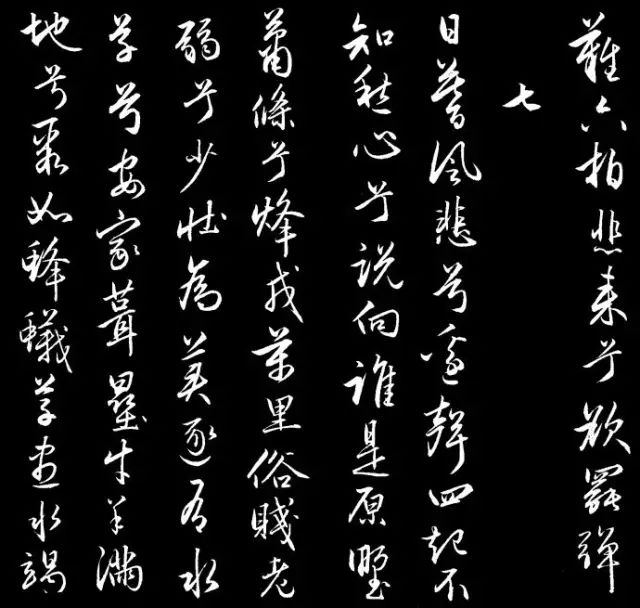 難六拍悲来兮欲罷彈
七
日暮風悲兮邊聲四起不
知愁心兮説向誰是原野
蕭條兮烽戍萬里俗賤老
弱兮少壯為美逐有水
草兮安家葺壘牛羊滿
地兮聚如蜂蟻草盡水竭